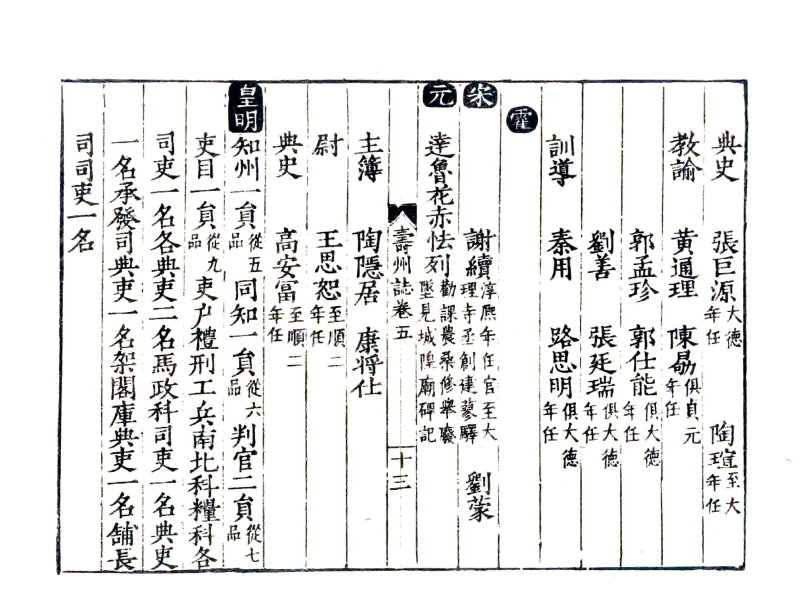 典史 張巨源大德年任 陶瑄至大年任
教諭 黃通理 陳勗俱貞元年任
郭孟珍 郭仕能俱大德年任
劉善 張廷瑞俱大德年任
訓導 秦用 路思明俱大德年任
霍
宋 謝續淳熈年任官至大理寺丞創建蓼驛 劉蒙
元 達魯花赤怯列勸課農桑修舉廢墜見城隍廟碑記
壽州誌卷五 十三
主簿 陶隱居 康將仕
尉 王思恕至順二年任
典史 高安冨至順二年任
皇明 知州一員從五品同知一員從六品判官二員從七品
吏目一員從九品吏戶禮刑工兵南北科糧科各
司吏一名各典吏二名馬政科司吏一名典吏
一名承發司典吏一名架閣庫典吏一名舖長
司司吏一名